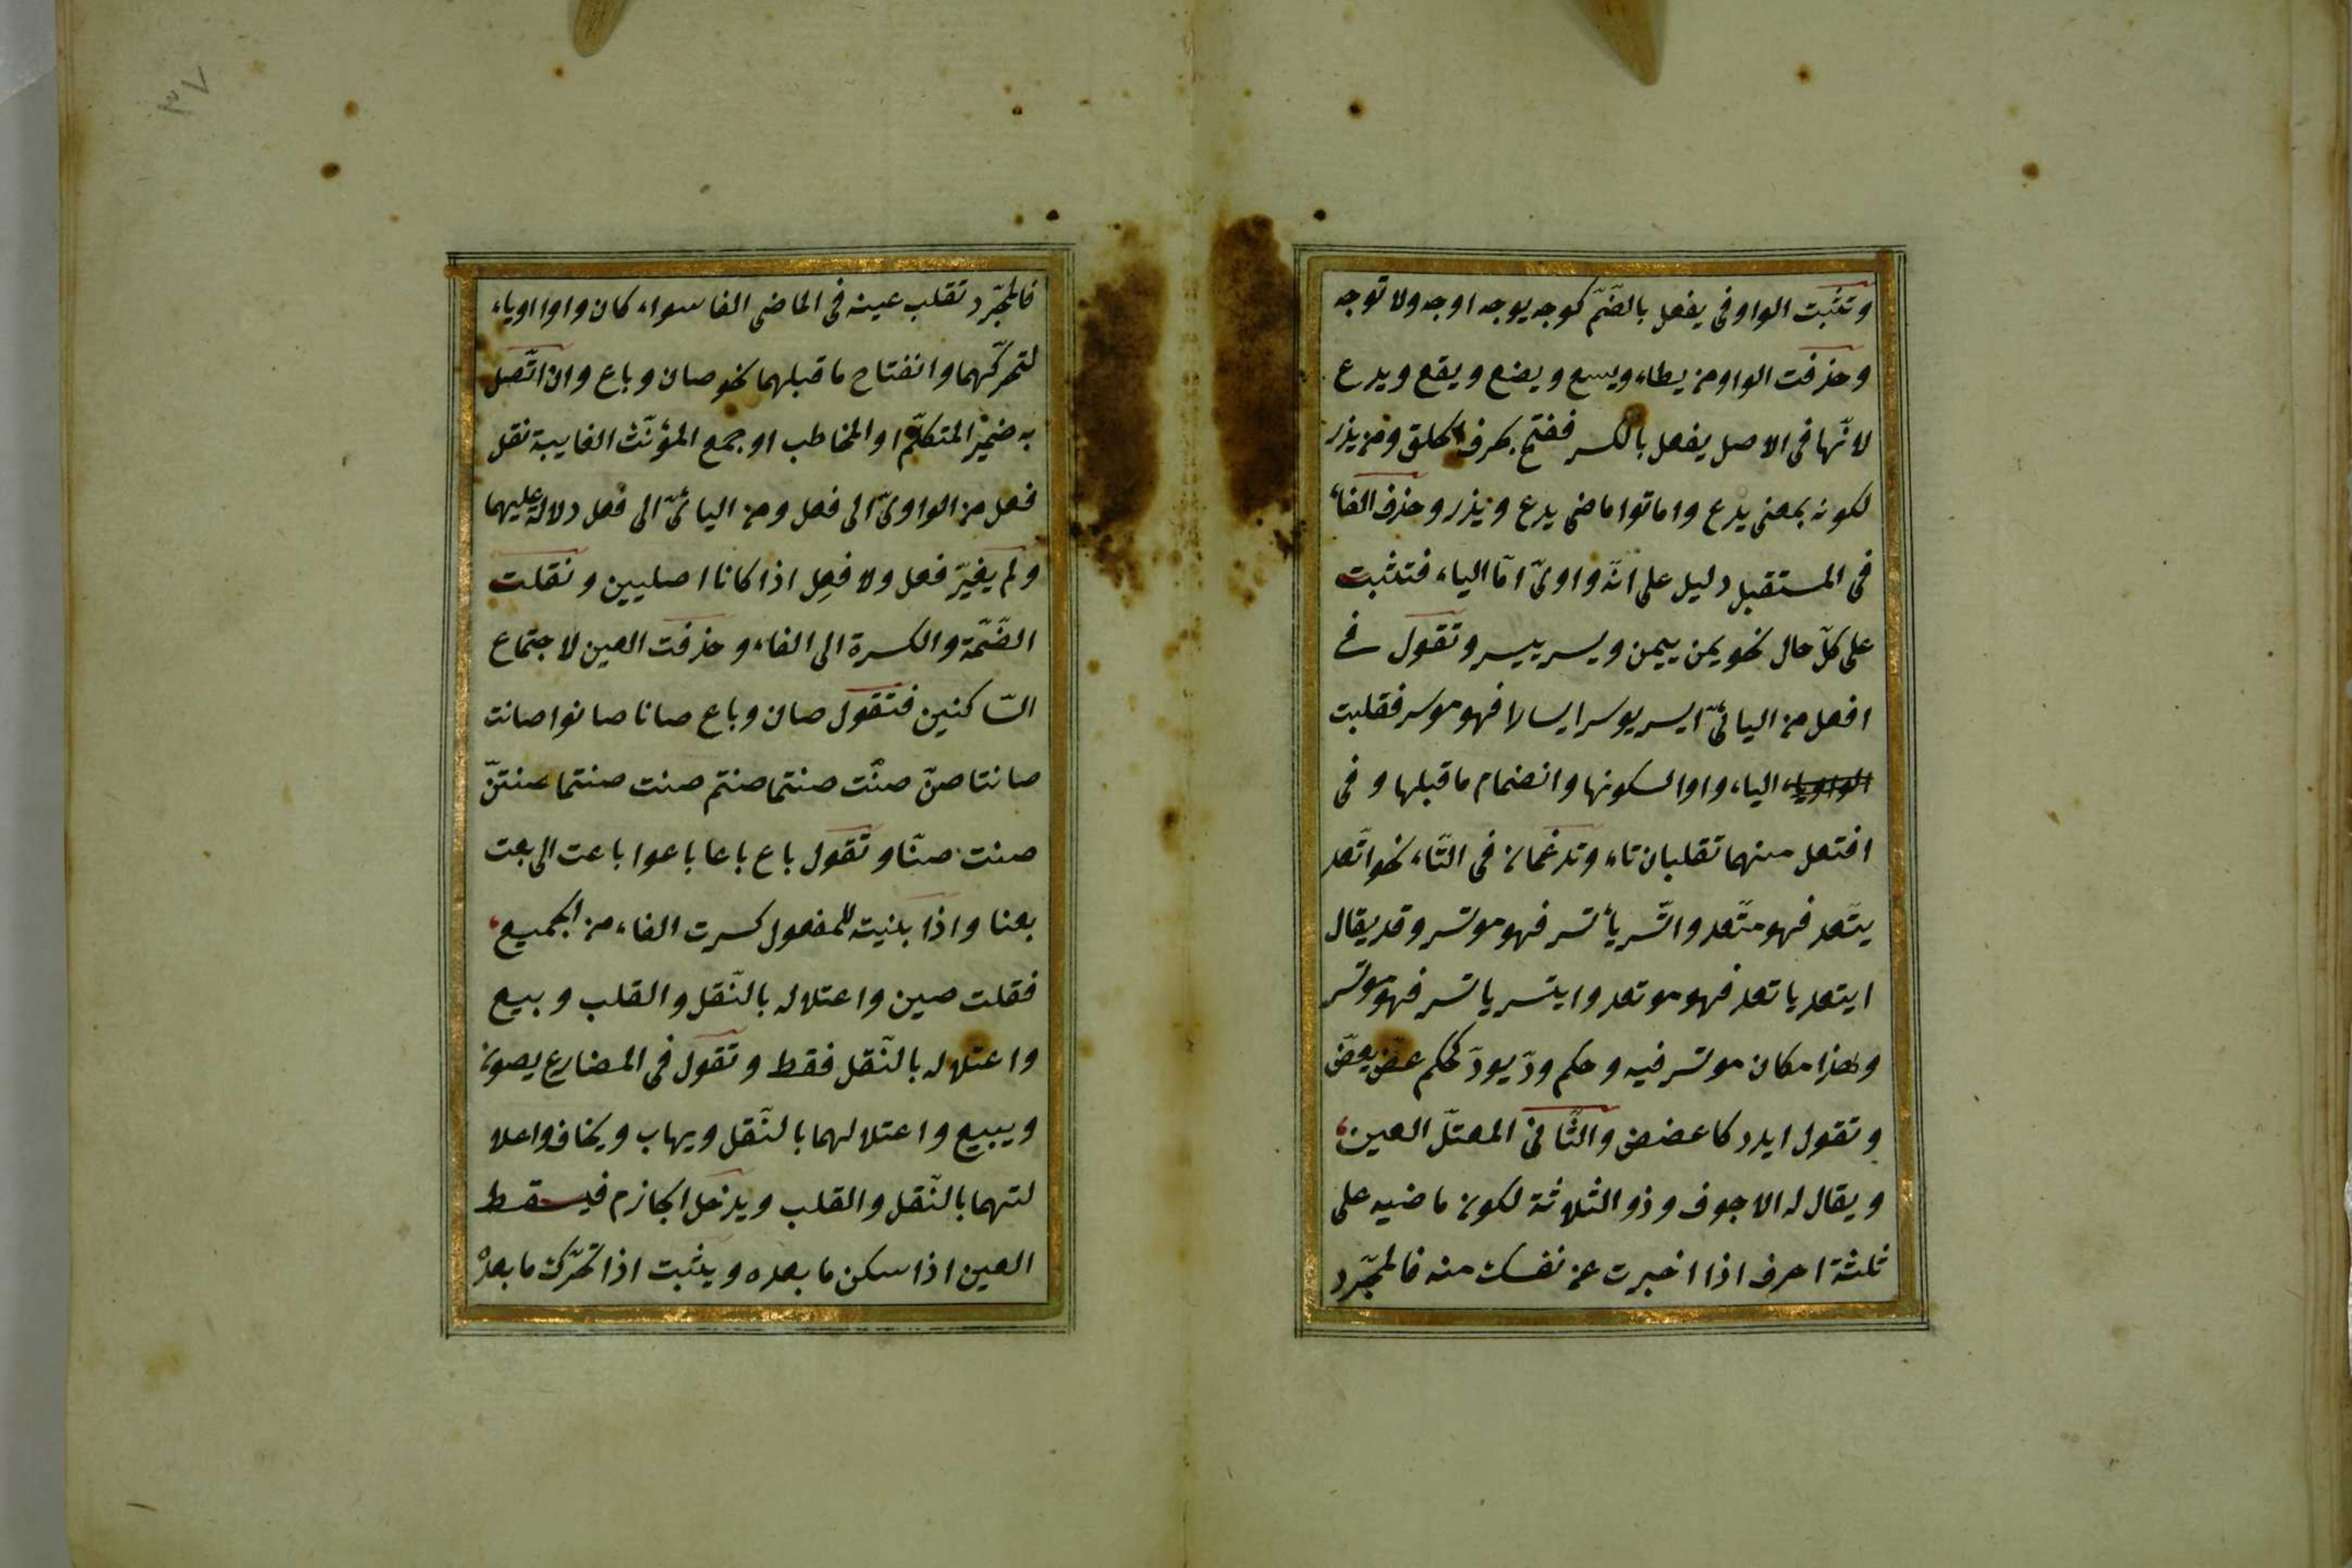 وتثبت الواو فى يفعل بالضّمّ كوجه يوجه اوجه ولا توجه
وحذفت الواو من يطاء ويسع ويضع ويقع ويدع
لانّها فى الاصل يفعل بالكسر ففتح بحرف الحلق ومن يذر
لكونه بمعنى يدع واماتوا ماضى يدع ويذر وحذف الفاء
فى المستقبل دليل على انّه واوىّ امّا الياء فتثبت
على كلّ حال نحو يمن ييمن ويسر ييسر وتقول فى
افعل من اليائىّ ايسر يوسر ايسارا فهو موسر فقلبت
الياء واوا لسكونها وانضمام ما قبلها وفى
افتعل منهما تقلبان تاء وتدغمان فى التّاء نحو اتّعد
يتّعد فهو متّعد واتّسر يأتسر فهو موتسر وقد يقال
ايتعد ياتعد فهو موتعد وايتسر ياتسر فهو موتسر
وهذا مكان موتسر فيه وحكم ودّ يودّ كحكم عضّ يعضّ
وتقول ايدد كاعضض والثّانى المعتلّ العين
ويقال له الاجوف وذو الثلاثة لكون ماضيه على
ثلثة احرف اذا اخبرت عن نفسك منه فالمجّرد
٣٧
فالمجّرد تقلب عينه فى الماضى الفا سواء كان واوا اوياء
لتحرّكهما وانفتاح ما قبلهما نحو صان وباع وان اتّصل
به ضمير المتكلّم او المخاطب او جمع المؤنّث الغايبة نقل
فعل من الواوىّ الى فعل ومن اليائىّ الى فعل دلالة عليهما
ولم يغيّر فعل ولا فعِل اذا كانا اصليين ونقلت
الضّمّة والكسرة الى الفاء وحذفت العين لاجتماع
السّاكنين فتقول صان وباع صانا صانوا صانت
صانتا صنّ صنت صنتما صنتم صنت صنتما صنتنّ
صنت صنّا وتقول باع باعا باعوا باعت الى بعت
بعنا واذا بنيته للمفعول كسرت الفاء من الجميع
فقلت صين واعتلاله بالنّقل والقلب وبيع
واعتلاله بالنّقل فقط وتقول فى المضارع يصون
ويبيع واعتلالهما بالنّقل ويهاب ويخاف واعلا
لتهما بالنّقل والقلب ويدخل الجازم فيسقط
العين اذا سكن ما بعده ويثبت اذا تحرّك ما بعده